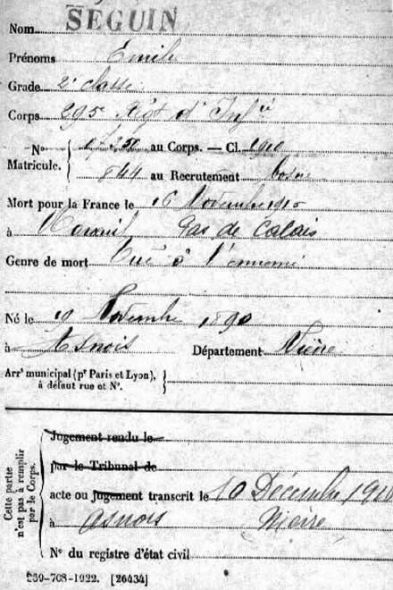 Nom SEGUIN
Prénoms Emile
Grade 2e classe
Corps 295e Régt d'Infie
No au Corps. — Cl. 1910
Matricule. 844 au Recrutement
Mort pour la France le 16 Novembre 1915
à Pas de Calais
Genre de mort Tué à l'ennemi
Né le 19 Novembre 1890
à Asnois Département Nièvre
Arrt municipal (pr Paris et Lyon),
à défaut rue et No.
Cette partie
n'est pas à remplir
par le Corps.
Jugement rendu le
par le Tribunal de
acte ou jugement transcrit le 10 Décembre
à Asnois Nièvre
No du registre d'état civil
[26434]